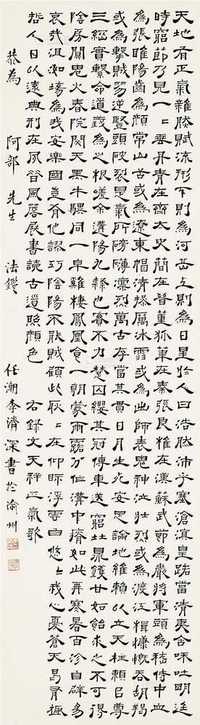 天地有正氣雜然賦流形下則為河岳上則為日星於人曰浩然沛乎塞滄溟皇路當清夷含和吐明廷
時窮節乃見一一垂丹青在齊太史簡在晉董狐筆在秦張良椎在漢蘇武節為嚴將軍頭為嵇侍中血
為張睢陽齒為顏常山舌或為遼東帽清操厲冰雪或為出師表鬼神泣壯烈或為渡江楫慷慨吞胡羯
或為擊賊笏逆豎頭破裂是氣所磅礴凜烈萬古存當其貫日月生死安足論地維賴以立天柱賴以尊
三綱實繫命道義為之根嗟余遘陽九隸也實不力楚囚纓其冠傳車送窮北鼎鑊甘如飴求之不可得
陰房闃鬼火春院閟天黑牛驥同一皁雞棲鳳凰食一朝蒙霧露分作溝中瘠如此再寒暑百沴自辟易
哀哉沮洳場為我安樂國豈有他謬巧陰陽不能賊顧此耿耿在仰視浮雲白悠悠我心憂蒼天曷有極
哲人日以遠典刑在夙昔風簷展書讀古道照顏色 右錄文天祥正氣歌
恭為 阿部先生 法鑒 任潮李濟深書於渝州